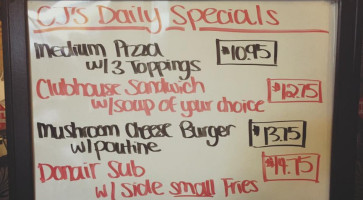 CJ's Daily Specials
Medium Pizza $10.95
w/3 Toppings
Clubhouse Sandwich $12.75
w/soup of your choice
Mushroom Cheese Burger $13.75
w/poutine
Donair Sub $14.75
w/ Side small Fries